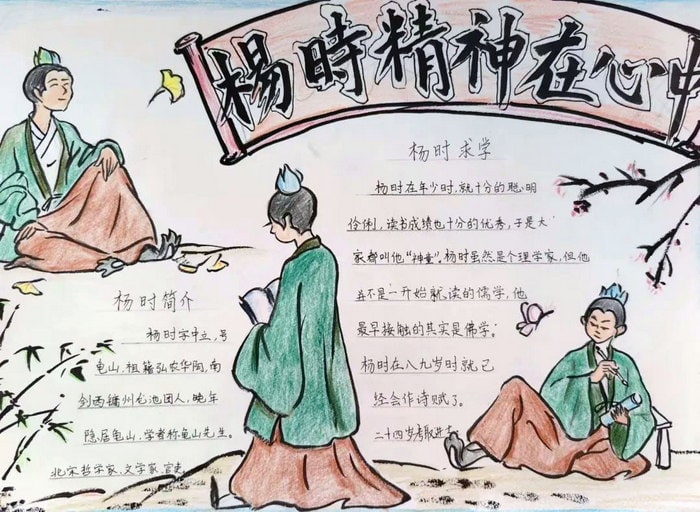 楊時精神在心中
杨时求学
杨时在年少时,就十分的聪明
伶俐,读书成绩也十分的优秀,于是大
家都叫他“神童”。杨时虽然是个理学家,但他
并不是一开始就读的儒学,他
最早接触的其实是佛学。
杨时在八九岁时就已
经会作诗赋了。
二十四岁考取进
杨时简介
杨时字中立,号
龟山,祖籍弘农华阴,南
剑西镛州龙池团人,晚年
隐居龟山,学者称龟山先生。
北宋哲学家,文学家,官吏。